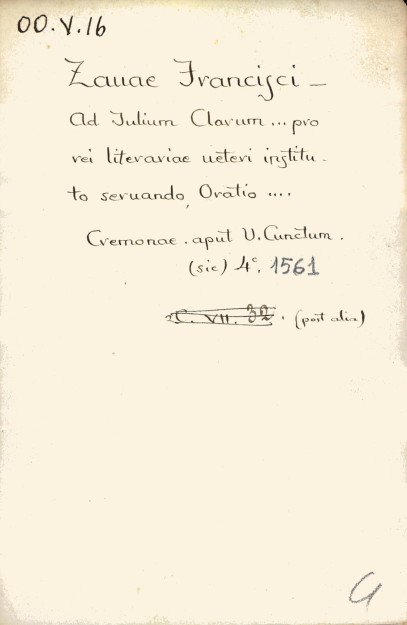 OO.V.16
Zauae Francisci —
Ad Iulium Clarum ... pro
rei literariae ueteri institu-
to seruando, Oratio ....
Cremonae . aput V. Cunctum .
(sic) 4°. 1561
C. VII. 32 . (post alia)